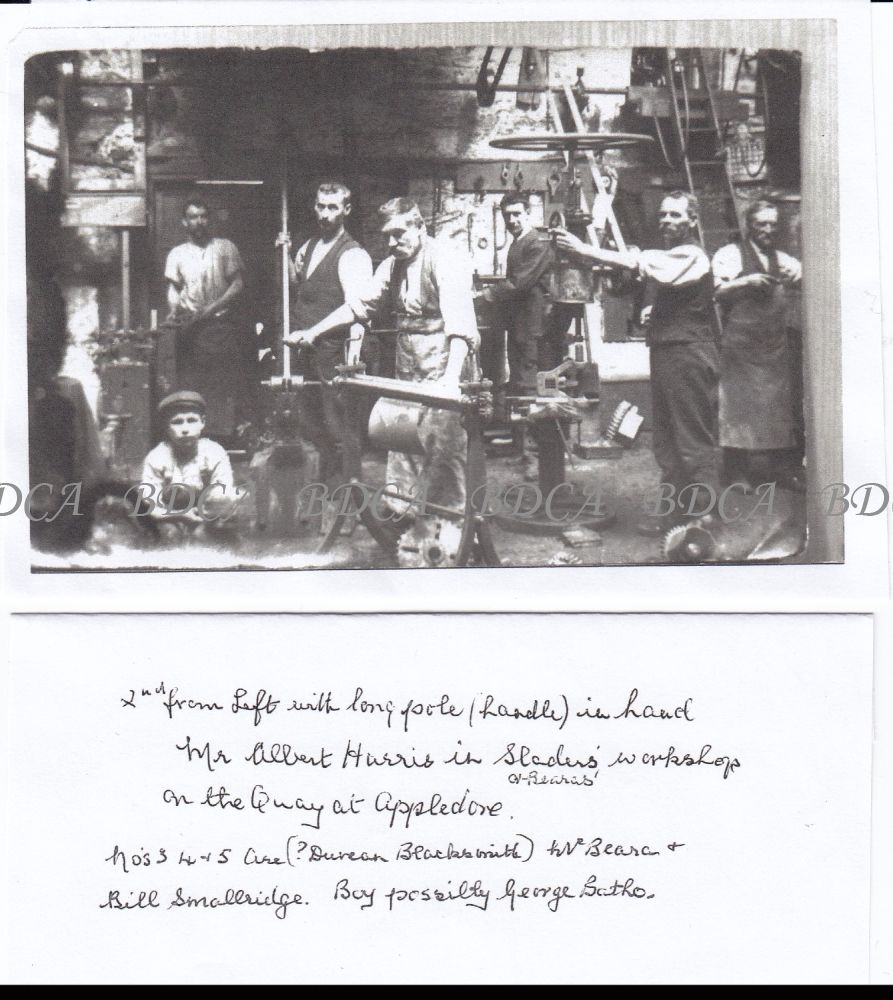 BDCA BDCA BDCA BDCA BDCA BDCA
2nd from Left with long pole (handle) in hand
Mr Albert Harris in Sladers' workshop
or Bearas'
on the Quay at Appledore.
No's 3 4 + 5 are (? Duncan Blacksmith) Mr Beara +
Bill Smallridge. Boy possilty George Batho.